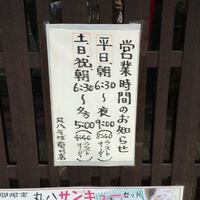 営業時間のお知らせ
平日朝6:30〜夜9:00
(8:40ラストオーダー)
土日祝朝6:30〜夕5:00
(4:40ラストオーダー)
期間限定
丸八サンキューセット